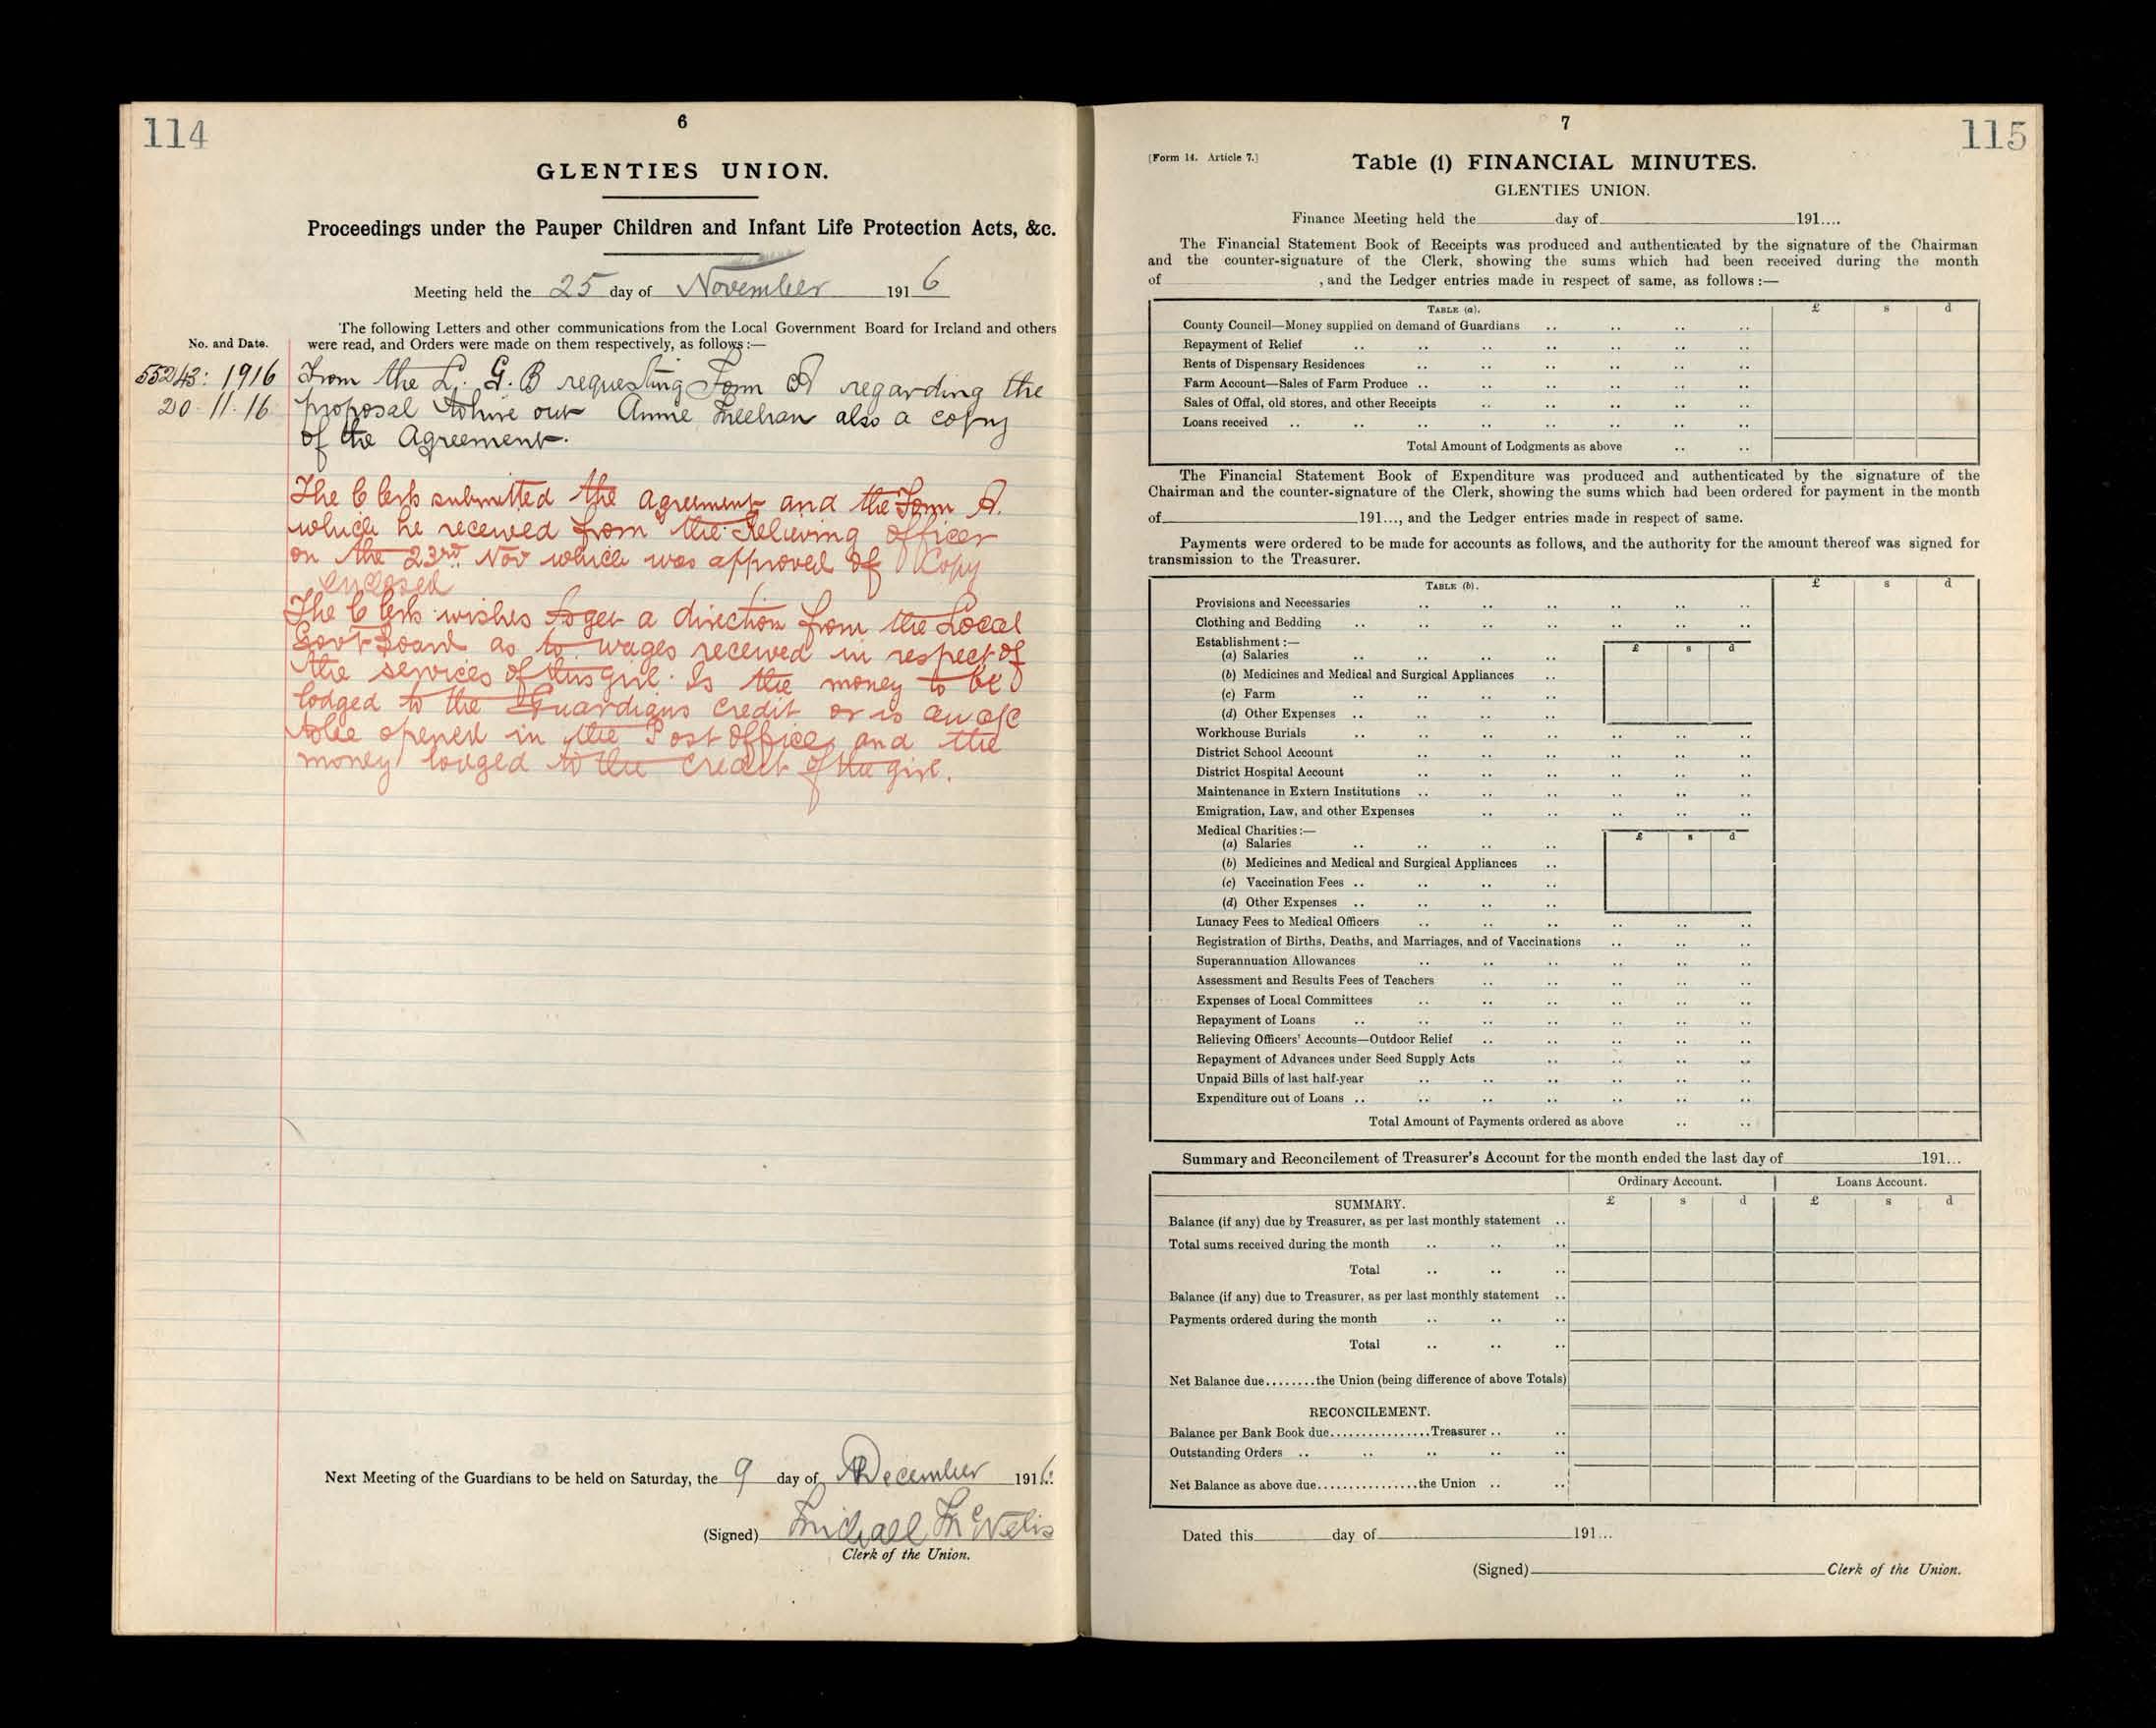 114
6
GLENTIES UNION.
Proceedings under the Pauper Children and Infant Life Protection Acts, &c.
Meeting held the 25 day of November 1916
The following Letters and other communications from the Local Government Board for Ireland and others
No. and Date. were read, and Orders were made on them respectively, as follows:—
55243: 1916 From the L. G. B requesting Form A regarding the
20.11.16 proposal to hire out Annie Meehan also a copy
of the Agreement.
The Clerk submitted the agreement and the Form A.
which he received from the Relieving Officer
on the 23rd. Nov which was approved of Copy
enclosed
The Clerk wishes to get a direction from the Local
Govt Board as to wages received in respect of
the services of this girl. Is the money to be
lodged to the Guardians credit or is an a/c
to be opened in the Post Office and the
money lodged to the credit of the girl.
Next Meeting of the Guardians to be held on Saturday, the 9 day of December 1916.
(Signed) Michael McNelis
Clerk of the Union.
7
115
[Form 14. Article 7.]
Table (1) FINANCIAL MINUTES.
GLENTIES UNION.
Finance Meeting held the day of 191....
The Financial Statement Book of Receipts was produced and authenticated by the signature of the Chairman
and the counter-signature of the Clerk, showing the sums which had been received during the month
of , and the Ledger entries made in respect of same, as follows:—
TABLE (a). £ s d
County Council—Money supplied on demand of Guardians .. .. .. ..
Repayment of Relief .. .. .. .. .. .. ..
Rents of Dispensary Residences .. .. .. .. .. ..
Farm Account—Sales of Farm Produce .. .. .. .. .. ..
Sales of Offal, old stores, and other Receipts .. .. .. .. ..
Loans received .. .. .. .. .. .. .. ..
Total Amount of Lodgments as above .. ..
The Financial Statement Book of Expenditure was produced and authenticated by the signature of the
Chairman and the counter-signature of the Clerk, showing the sums which had been ordered for payment in the month
of 191..., and the Ledger entries made in respect of same.
Payments were ordered to be made for accounts as follows, and the authority for the amount thereof was signed for
transmission to the Treasurer.
TABLE (b). £ s d
Provisions and Necessaries .. .. .. .. .. ..
Clothing and Bedding .. .. .. .. .. .. ..
Establishment:— £ s d
(a) Salaries .. .. .. ..
(b) Medicines and Medical and Surgical Appliances ..
(c) Farm .. .. .. ..
(d) Other Expenses .. .. .. ..
Workhouse Burials .. .. .. .. .. .. ..
District School Account .. .. .. .. .. ..
District Hospital Account .. .. .. .. .. ..
Maintenance in Extern Institutions .. .. .. .. .. ..
Emigration, Law, and other Expenses .. .. .. .. ..
Medical Charities:— £ s d
(a) Salaries .. .. .. ..
(b) Medicines and Medical and Surgical Appliances ..
(c) Vaccination Fees .. .. .. ..
(d) Other Expenses .. .. .. ..
Lunacy Fees to Medical Officers .. .. .. .. .. ..
Registration of Births, Deaths, and Marriages, and of Vaccinations .. .. ..
Superannuation Allowances .. .. .. .. .. ..
Assessment and Results Fees of Teachers .. .. .. .. ..
Expenses of Local Committees .. .. .. .. .. ..
Repayment of Loans .. .. .. .. .. .. ..
Relieving Officers' Accounts—Outdoor Relief .. .. .. .. ..
Repayment of Advances under Seed Supply Acts .. .. .. ..
Unpaid Bills of last half-year .. .. .. .. .. ..
Expenditure out of Loans .. .. .. .. .. .. ..
Total Amount of Payments ordered as above .. ..
Summary and Reconcilement of Treasurer's Account for the month ended the last day of 191...
Ordinary Account. Loans Account.
SUMMARY. £ s d £ s d
Balance (if any) due by Treasurer, as per last monthly statement ..
Total sums received during the month .. .. ..
Total .. .. ..
Balance (if any) due to Treasurer, as per last monthly statement ..
Payments ordered during the month .. .. ..
Total .. .. ..
Net Balance due........the Union (being difference of above Totals)
RECONCILEMENT.
Balance per Bank Book due................Treasurer .. ..
Outstanding Orders .. .. .. .. ..
Net Balance as above due................the Union .. ..
Dated this day of 191...
(Signed) Clerk of the Union.